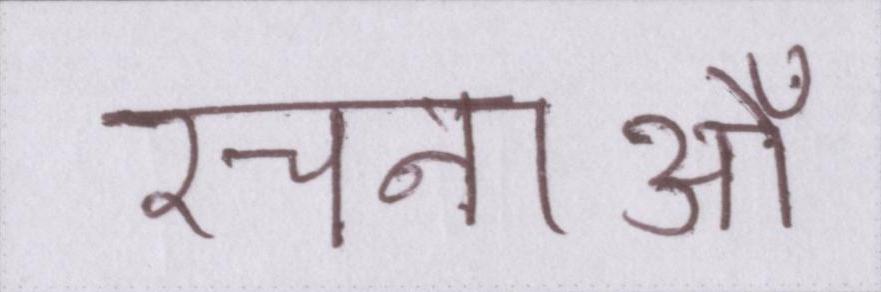 रचनाओँ